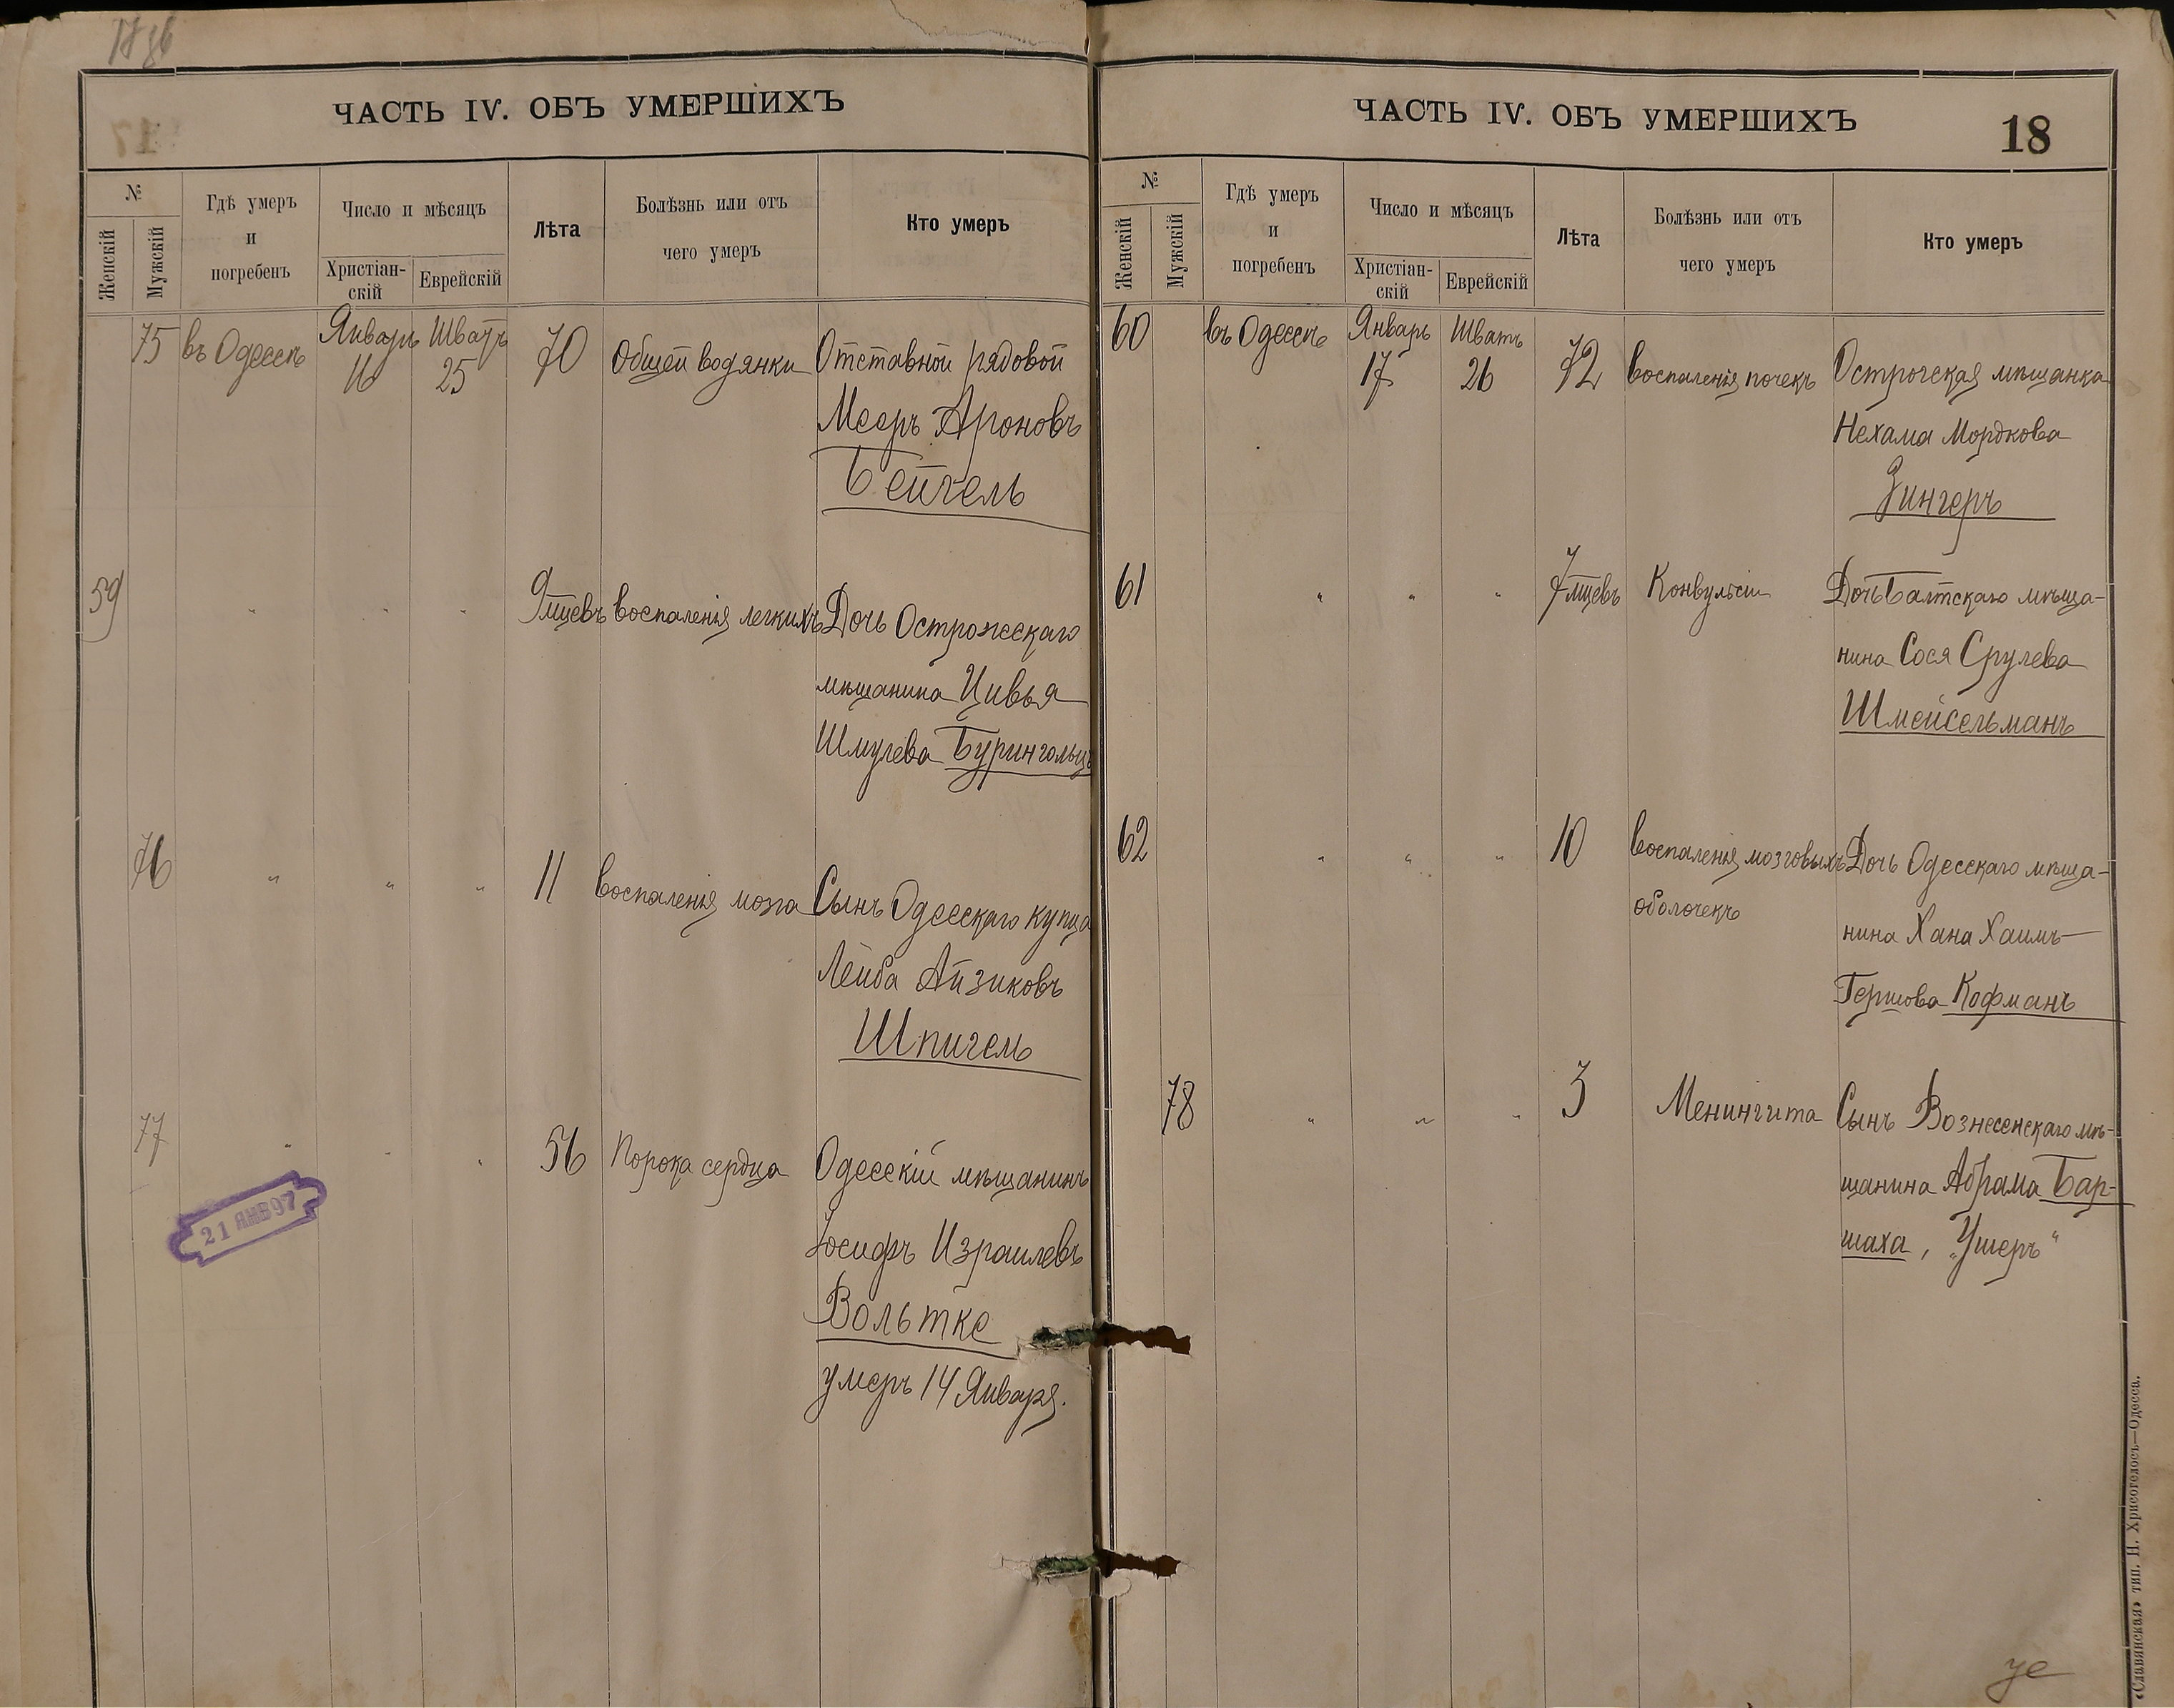 ЧАСТЬ IV. ОБЪ УМЕРШИХЪ
№
Женскій
Мужскій
Гдѣ умеръ
и
погребенъ
Число и мѣсяцъ
Христіан-
скій
Еврейскій
Лѣта
Болѣзнь или отъ
чего умеръ
Кто умеръ
75 въ Одессѣ Январь 16 Шватъ 25 70 Общей водянки Отставной рядовой
Мееръ Ароновъ
Бейгель
59 " " " 9 мцевъ воспаленія легкихъ Дочь Острожскаго
мѣщанина Цивья
Шмулева Бурингольцъ
76 " " " 11 воспаленія мозга Сынъ Одесскаго купца
Лейба Айзиковъ
Шпигель
77 " " " 56 Порока сердца Одесскій мѣщанинъ
Іосифъ Израилевъ
Вольтке
умеръ 14 Января.
21 ЯНВ 97
ЧАСТЬ IV. ОБЪ УМЕРШИХЪ
18
№
Женскій
Мужскій
Гдѣ умеръ
и
погребенъ
Число и мѣсяцъ
Христіан-
скій
Еврейскій
Лѣта
Болѣзнь или отъ
чего умеръ
Кто умеръ
60 въ Одессѣ Январь 17 Шватъ 26 72 воспаленія почекъ Острогская мѣщанка
Нехама Мордкова
Зингеръ
61 " " " 7 мцевъ Конвульсіи Дочь Балтскаго мѣща-
нина Сося Срулева
Шмейсельманъ
62 " " " 10 воспаленія мозговыхъ Дочь Одесскаго мѣща-
оболочекъ
нина Хана Хаимъ-
Гершова Кофманъ
78 " " " 3 Менингита Сынъ Вознесенскаго мѣ-
щанина Абрама Бар-
шаха, „Ушеръ“
«Славянская» тип. Н. Хрисогелосъ—Одесса.